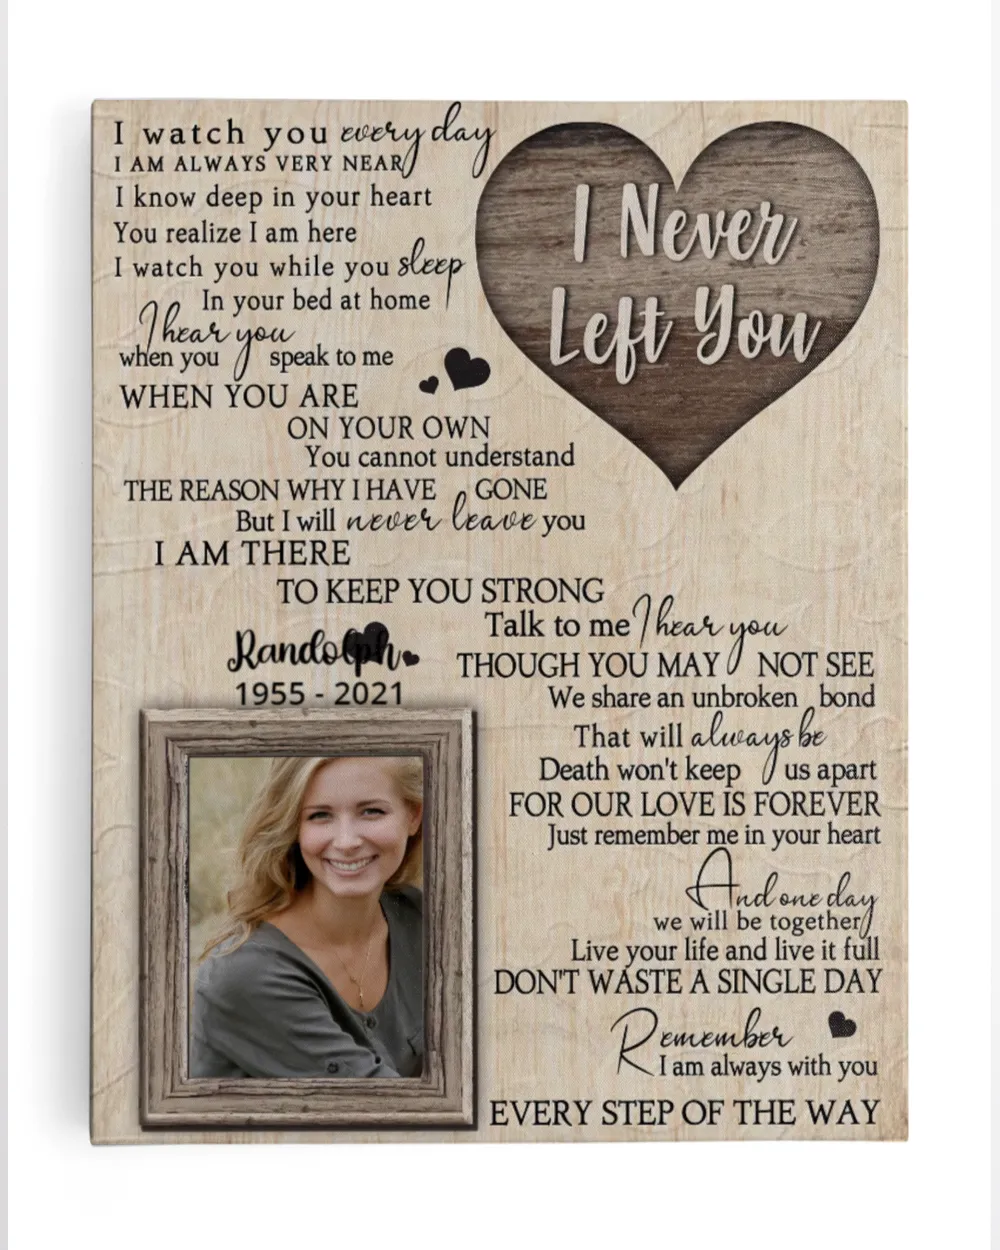 I Never
Left You
I watch you every day
I AM ALWAYS VERY NEAR
I know deep in your heart
You realize I am here
I watch you while you sleep
In your bed at home
I hear you
when you speak to me
WHEN YOU ARE
ON YOUR OWN
You cannot understand
THE REASON WHY I HAVE GONE
But I will never leave you
I AM THERE
TO KEEP YOU STRONG
Talk to me I hear you
THOUGH YOU MAY NOT SEE
We share an unbroken bond
That will always be
Death won't keep us apart
FOR OUR LOVE IS FOREVER
Just remember me in your heart
And one day
we will be together
Live your life and live it full
DON'T WASTE A SINGLE DAY
Remember
I am always with you
EVERY STEP OF THE WAY
Randolph
1955 - 2021